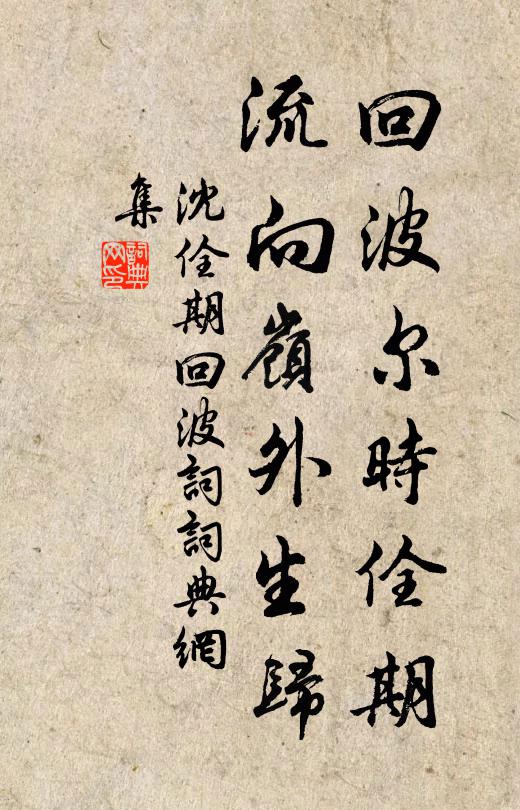 回波尔時佺期
流向嶺外生歸
沈佺期回波詞詞典網
集
詞典
网印